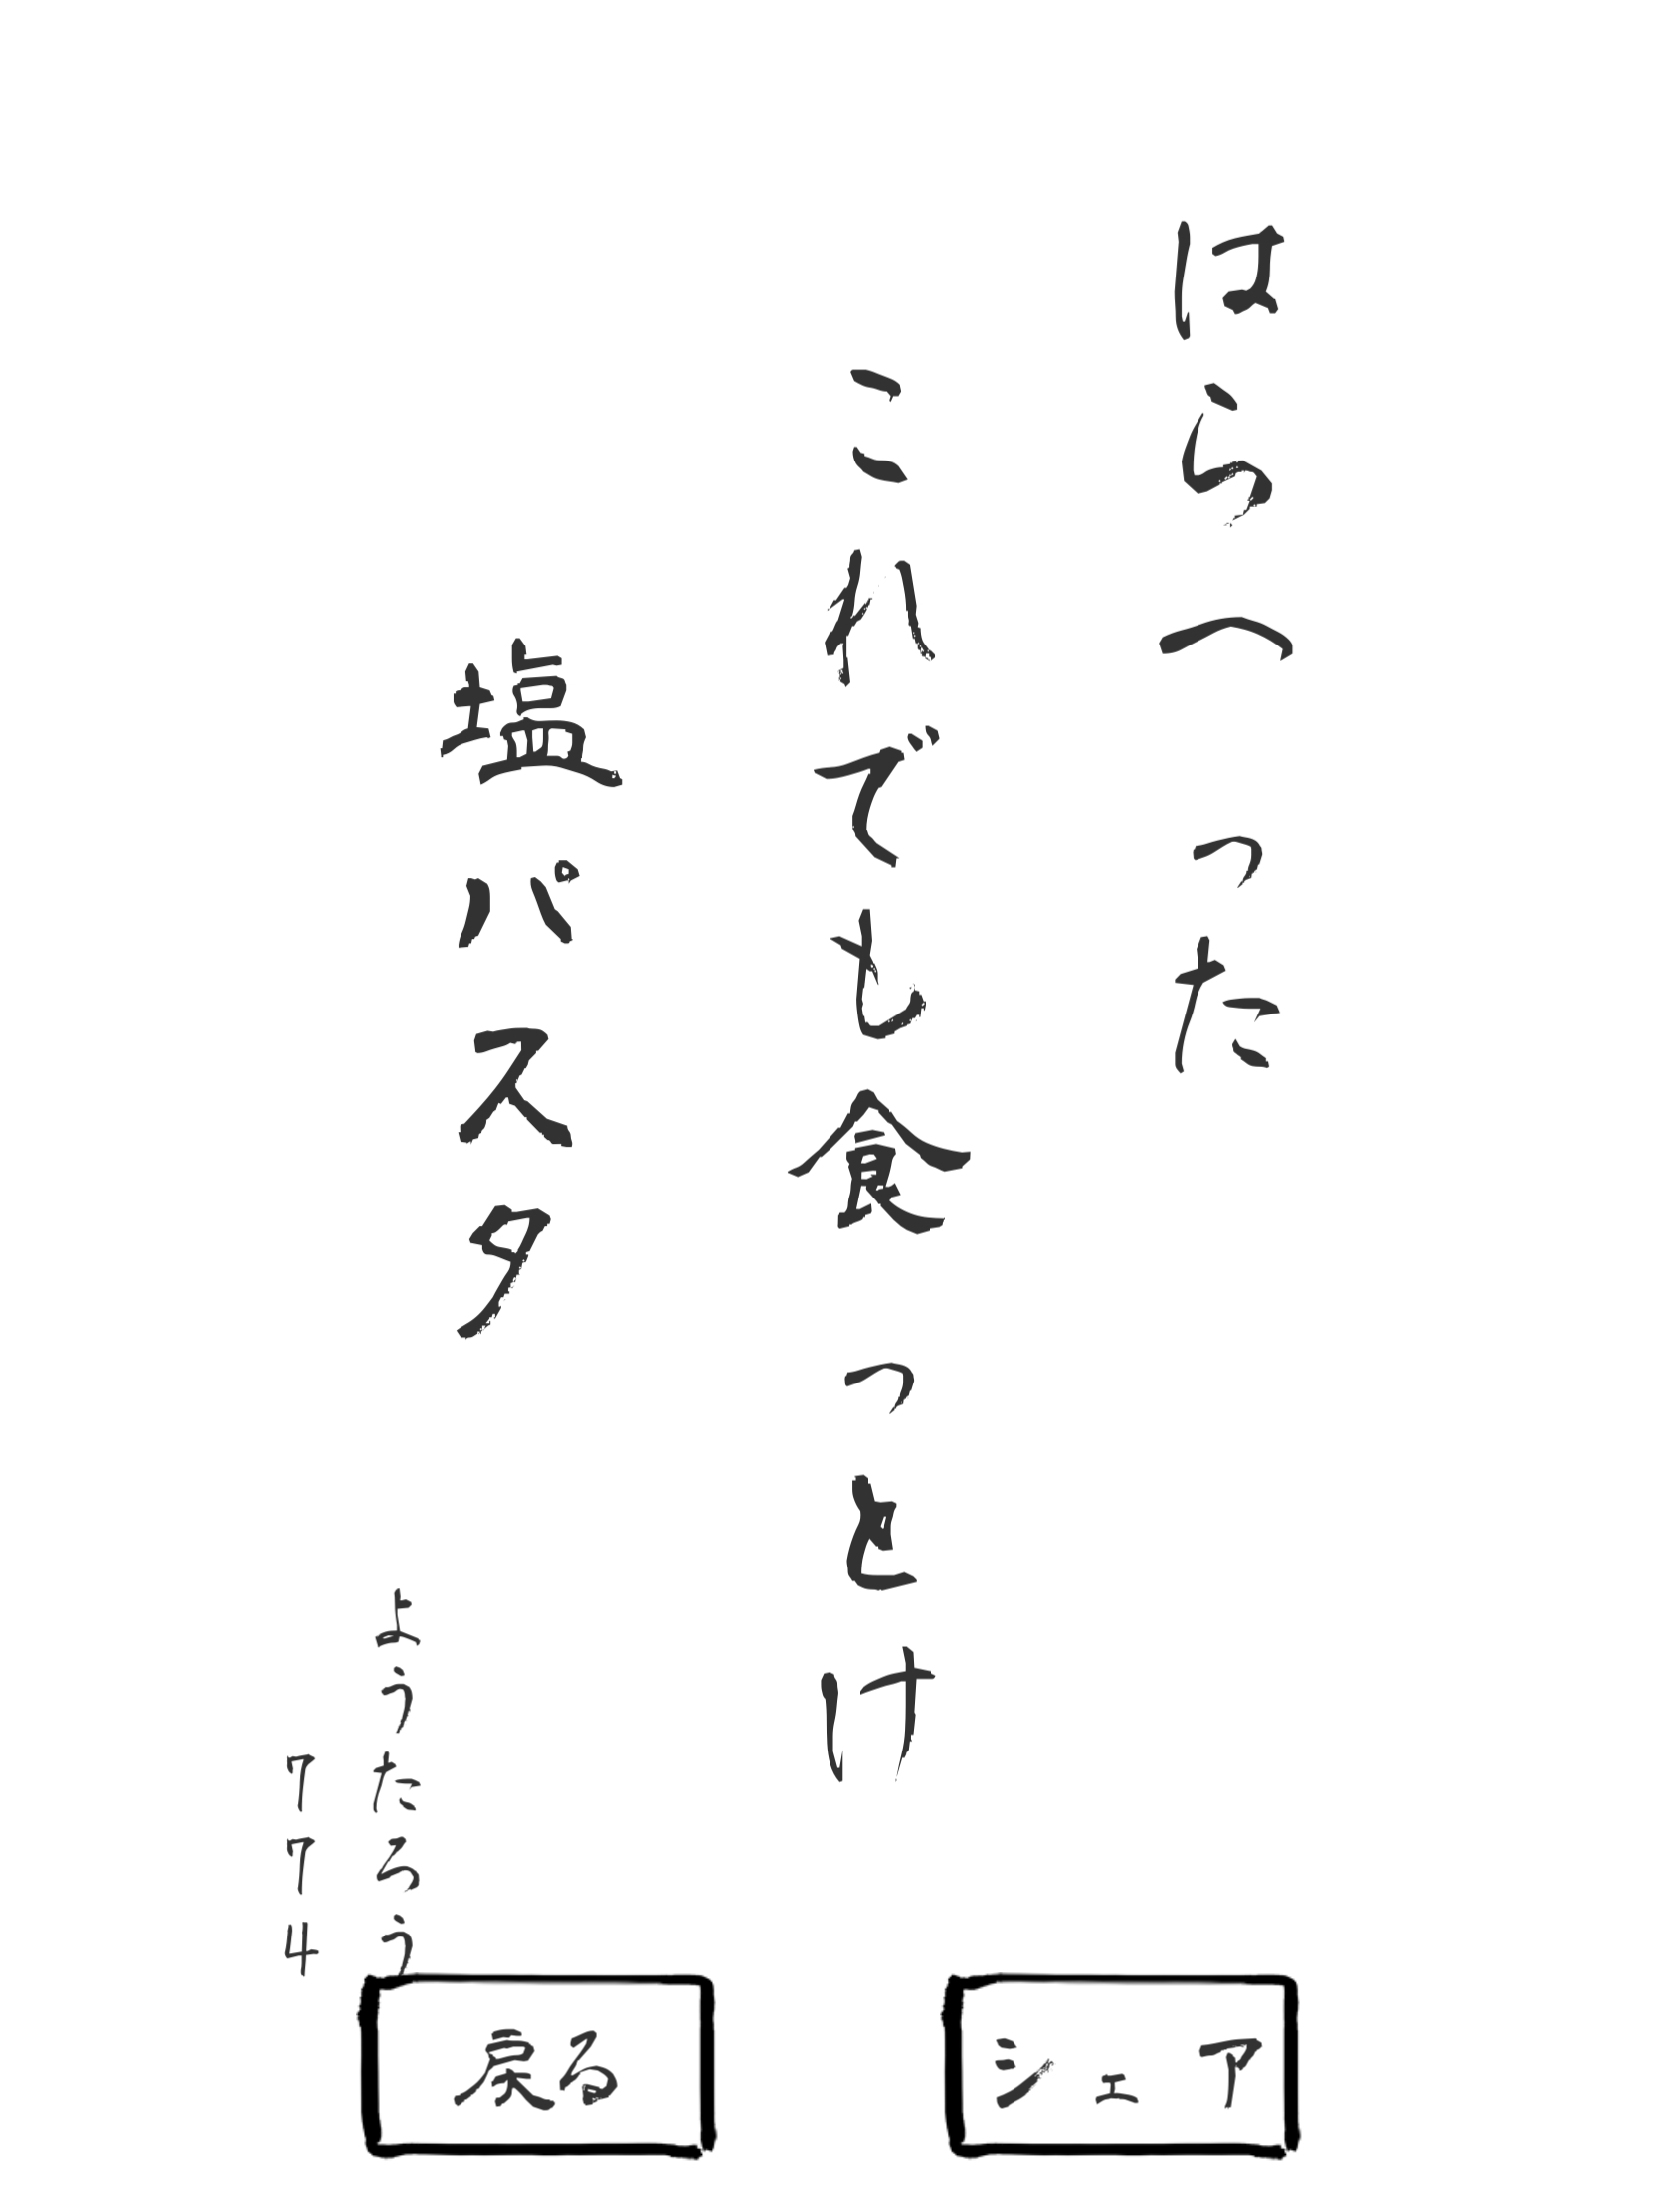 はらへった
これでも食っとけ
塩パスタ
ようたろう
774
戻る
シェア